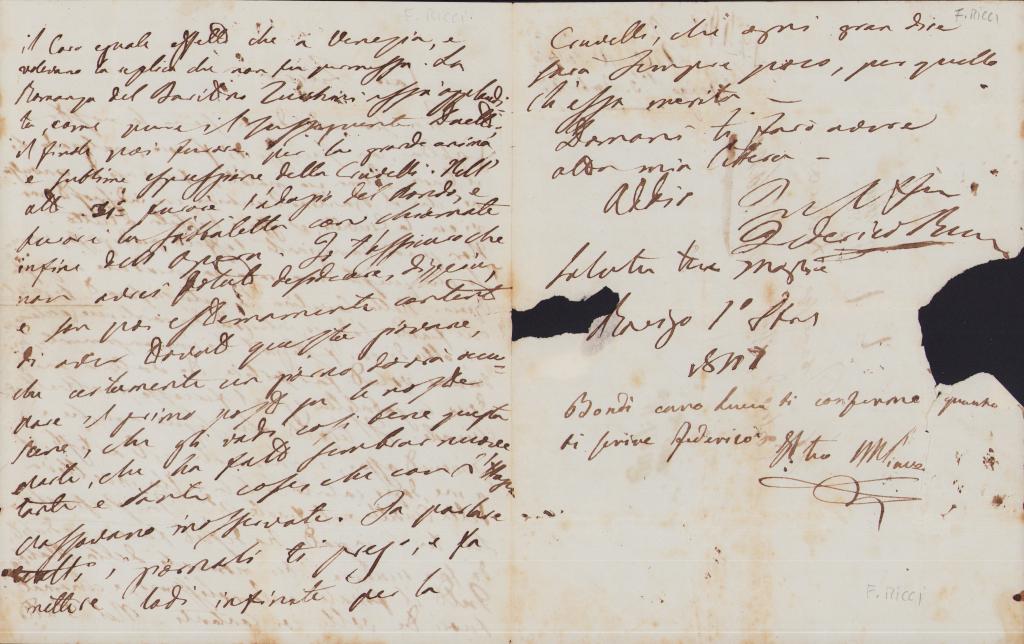 F. Ricci
il Coro eguale effetto che a Venezia, e
volevano la replica che non fu permessa. La
Romanza del Baritono
te, come pure il susseguente Duetto,
il finale poi furore per la grande anima
e sublime espressione della Crudelli. Nell'
atto 3° furore l'adagio del Rondò, e
furore la cabbaletta con chiamate
infine dell'Opera. Io t'assicuro che
non avrei potuto desiderare di più,
e son poi estremamente contento
di aver trovato questa giovane,
che certamente un giorno dovrà occu=
pare il primo posto fra le nostre
scene, che gli vada così bene questa
parte, che ha fatto sembrar nuove
tante e tante cose che con l'
passavano inosservate. Fa parlare
tutti i giornali ti prego, e fa
mettere lodi infinite per la
F. Ricci
Crudelli, che ogni gran dire
sarà sempre poco, per quello
ch'essa merita —
Domani ti farò avere
altra mia lettera —
Addio
Federico Ricci
Saluta tua moglie
Rovigo 1°
Bondì caro ti confermo quanto
ti scrive Federico. Il tuo MPiave
F. Ricci